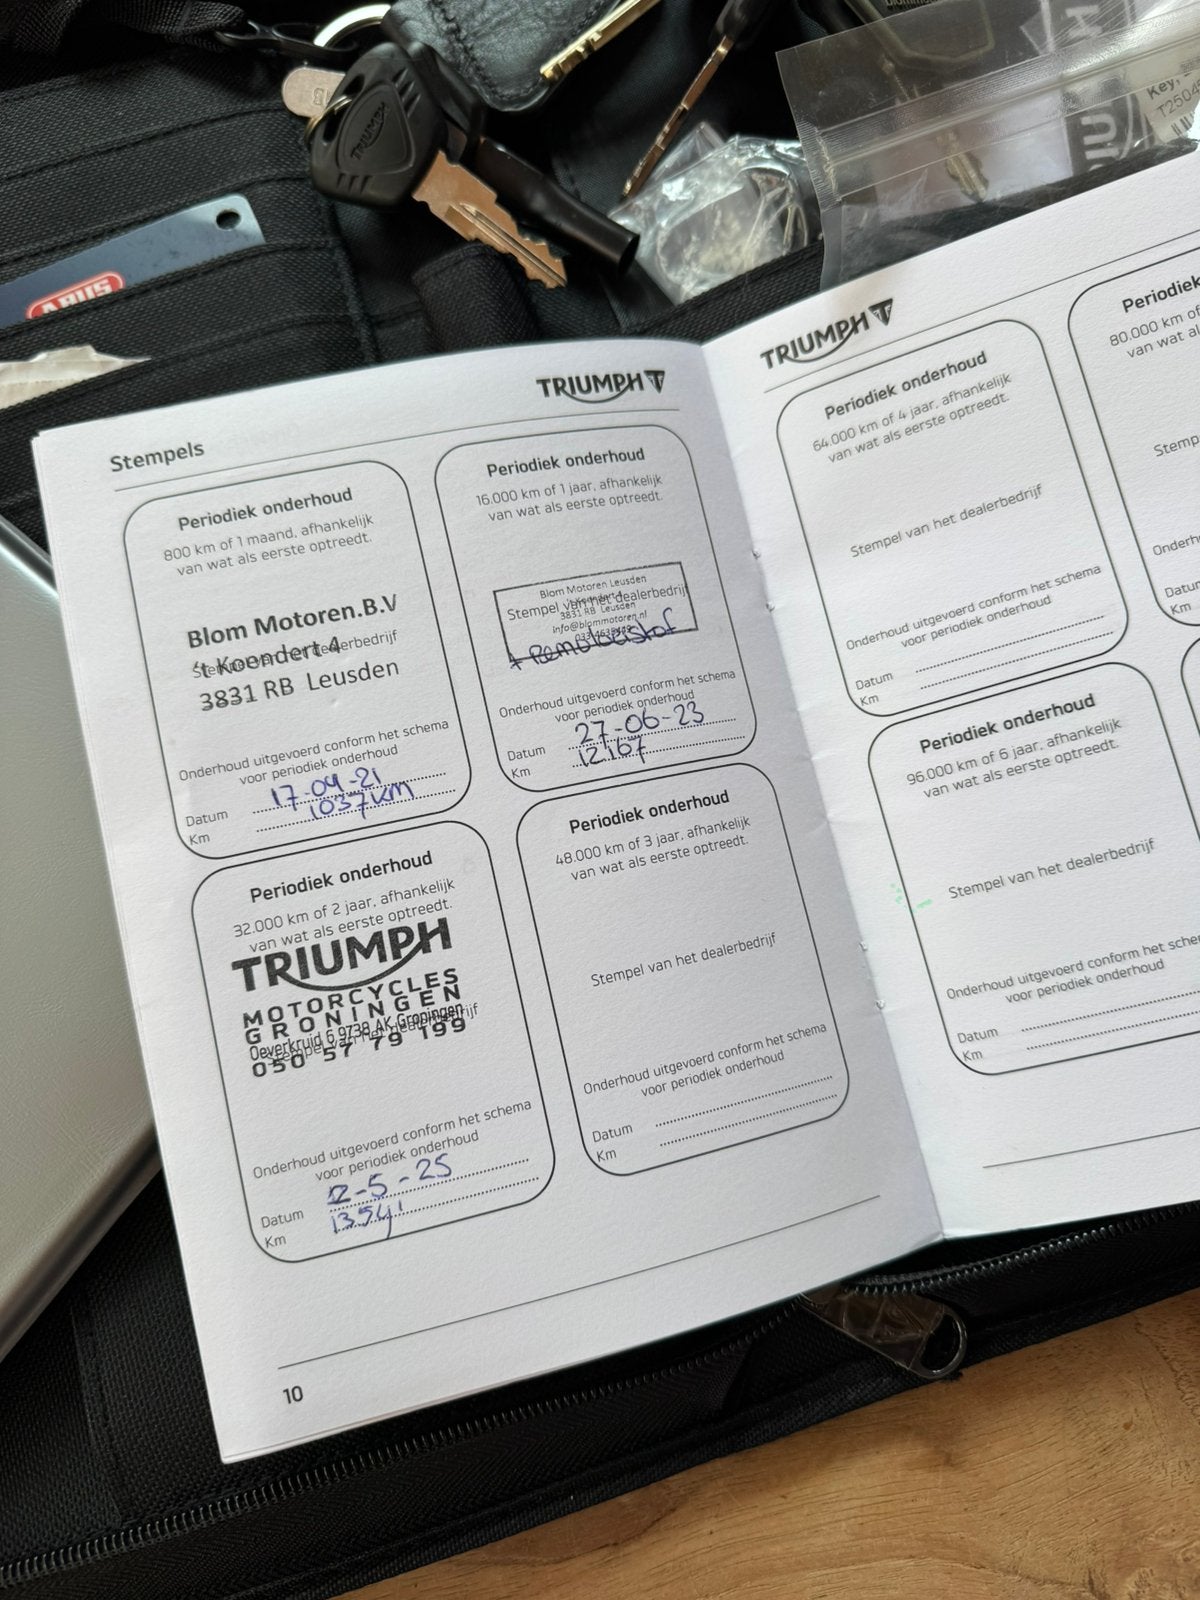 TRIUMPH
ABUS
Key,
TRIUMPH
Stempels
Periodiek onderhoud
800 km of 1 maand, afhankelijk
van wat als eerste optreedt.
Blom Motoren.B.V
Stempel van het dealerbedrijf
't Koendert 4
3831 RB Leusden
Onderhoud uitgevoerd conform het schema
voor periodiek onderhoud
Datum 17-04-21
Km 1037km
Periodiek onderhoud
16.000 km of 1 jaar, afhankelijk
van wat als eerste optreedt.
Blom Motoren Leusden
Stempel van het dealerbedrijf
3831 RB Leusden
info@blommotoren.nl
+ Remvloeistof
Onderhoud uitgevoerd conform het schema
voor periodiek onderhoud
Datum 27-06-23
Km 12.167
Periodiek onderhoud
32.000 km of 2 jaar, afhankelijk
van wat als eerste optreedt.
TRIUMPH
MOTORCYCLES
GRONINGEN
Oeverkruid 6 9738 AK Groningen
Stempel van het dealerbedrijf
050 57 79 199
Onderhoud uitgevoerd conform het schema
voor periodiek onderhoud
Datum 12-5-25
Km 13541
Periodiek onderhoud
48.000 km of 3 jaar, afhankelijk
van wat als eerste optreedt.
Stempel van het dealerbedrijf
Onderhoud uitgevoerd conform het schema
voor periodiek onderhoud
Datum
Km
10
TRIUMPH
Periodiek onderhoud
64.000 km of 4 jaar, afhankelijk
van wat als eerste optreedt.
Stempel van het dealerbedrijf
Onderhoud uitgevoerd conform het schema
voor periodiek onderhoud
Datum
Km
Periodiek
80.000 km of
van wat al
Stemp
Onderh
Datum
Km
Periodiek onderhoud
96.000 km of 6 jaar, afhankelijk
van wat als eerste optreedt.
Stempel van het dealerbedrijf
Onderhoud uitgevoerd conform het sche
voor periodiek onderhoud
Datum
Km